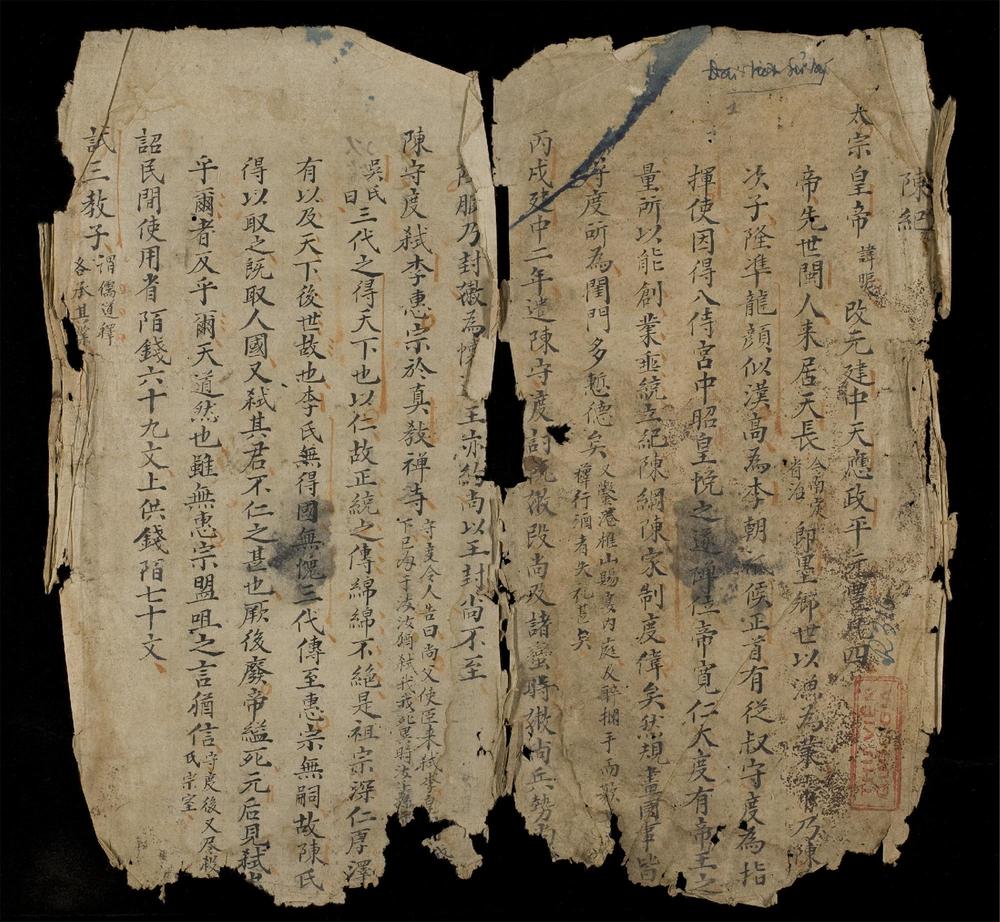 Đại Việt Sử lược
1
陳紀
太宗皇帝 諱昵 改元建中天應政平元豐 四
帝先世閩人来居天長 今南定省治 即墨鄉世以漁為業 帝乃陳
次子隆準龍顔似漢高為李朝祗候正首有從叔守度為指
揮使因得入侍宮中昭皇悅之遂禪位帝寬仁大度有帝王之
量所以能創業垂統立紀陳綱陳家制度偉矣然規畫國事皆
守度所為閨門多慙德矣 又鑿港樵山賜宴内庭及酔掴手而歌
禪行酒者失礼甚矣
丙戌建中二年遣陳守度討 段尚及諸蠻時嫩尚兵勢
服乃封嫩為懐 王亦約尚以王封尚不至
陳守度弒李惠宗於真教禅寺 守度令人告曰尚父使臣来弒
吳氏曰三代之得天下也以仁故正統之傳綿綿不絶是祖宗深仁厚澤
有以及天下後世故也李氏無得國無愧三代傳至惠宗無嗣故陳氏
得以取之既取人國又弒其君不仁之甚也厥後廢帝縊死元后見弒
乎爾者反乎爾天道然也雖無惠宗盟咀之言猶信 守度後又尽殺
氏宗室
詔民間使用省陌錢六十九文上供錢陌七十文
試三教子 謂儒道釋
各承其業
THƯ VIỆN